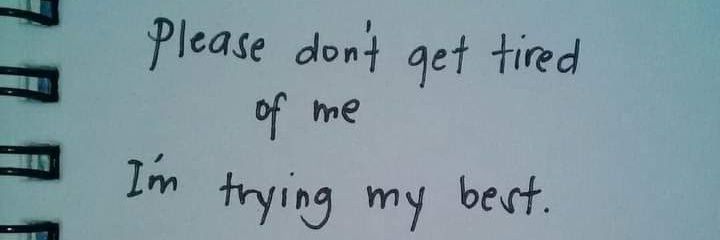 Please don't get tired
of me
I'm trying my best.